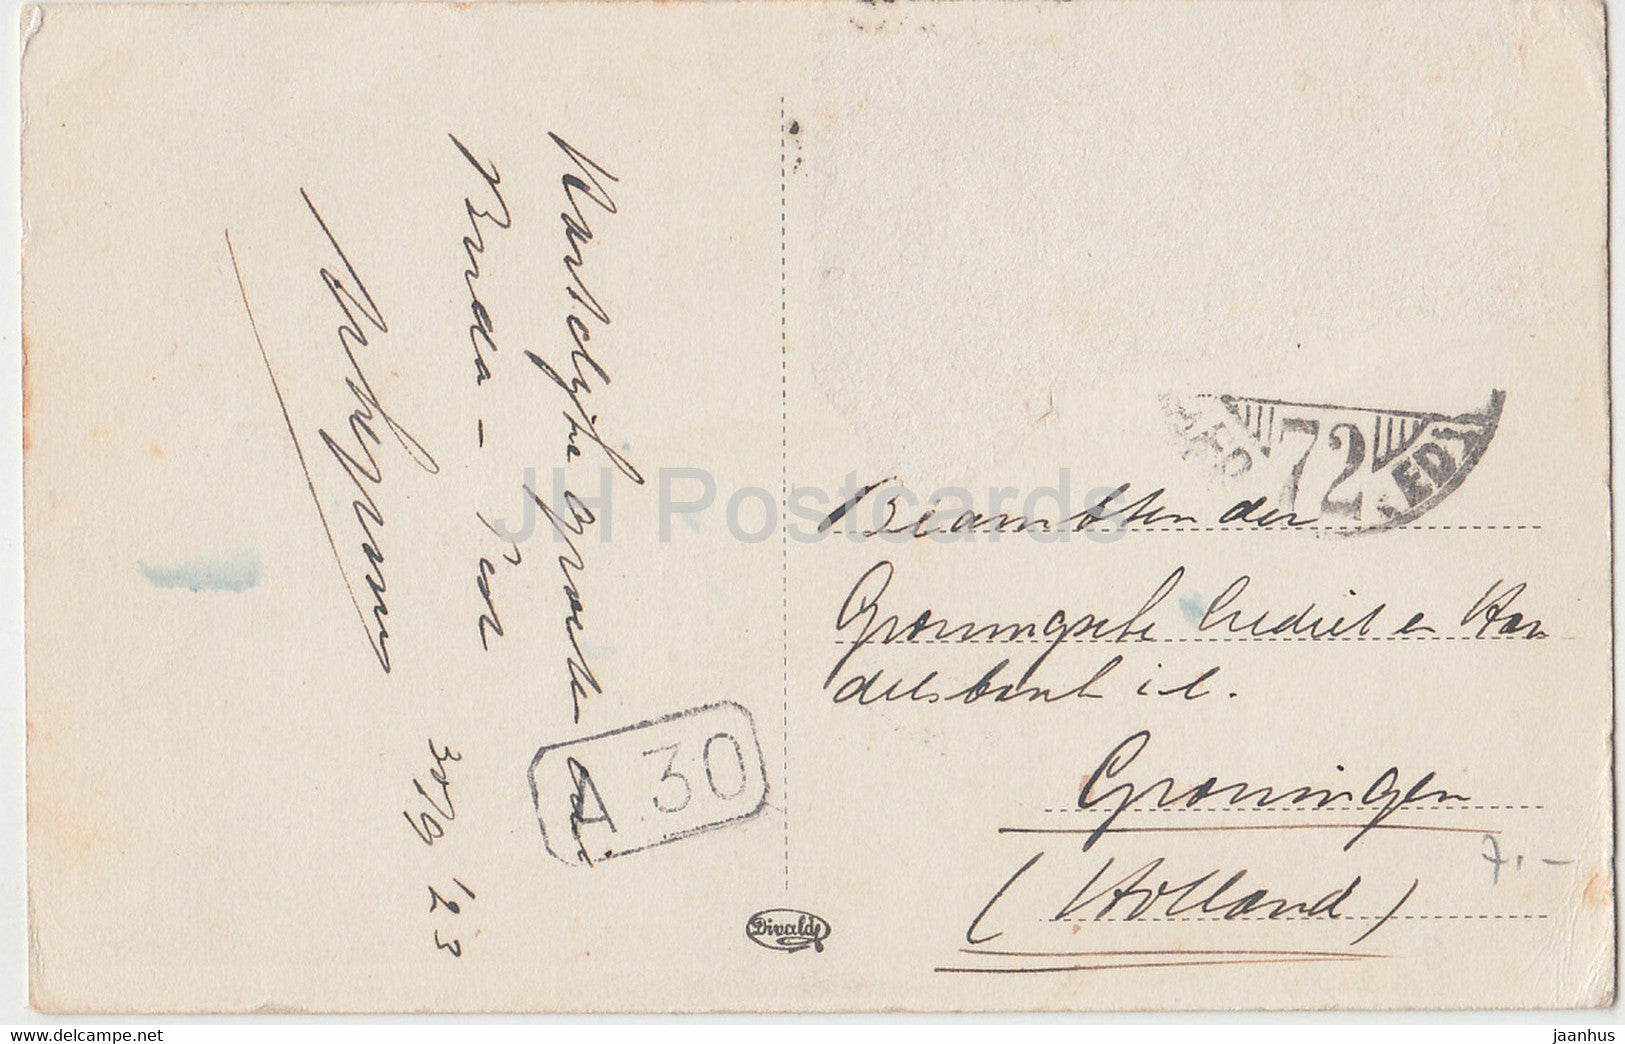 Hartelijke groeten uit
Buda - Pest
30/9 '23
T. 30
Divald
72
Beambten der
Groningsche Crediet en Han
delsbank i. l.
Groningen
(Holland)
7.-
JH Postcards
www.delcampe.net
jaanhus